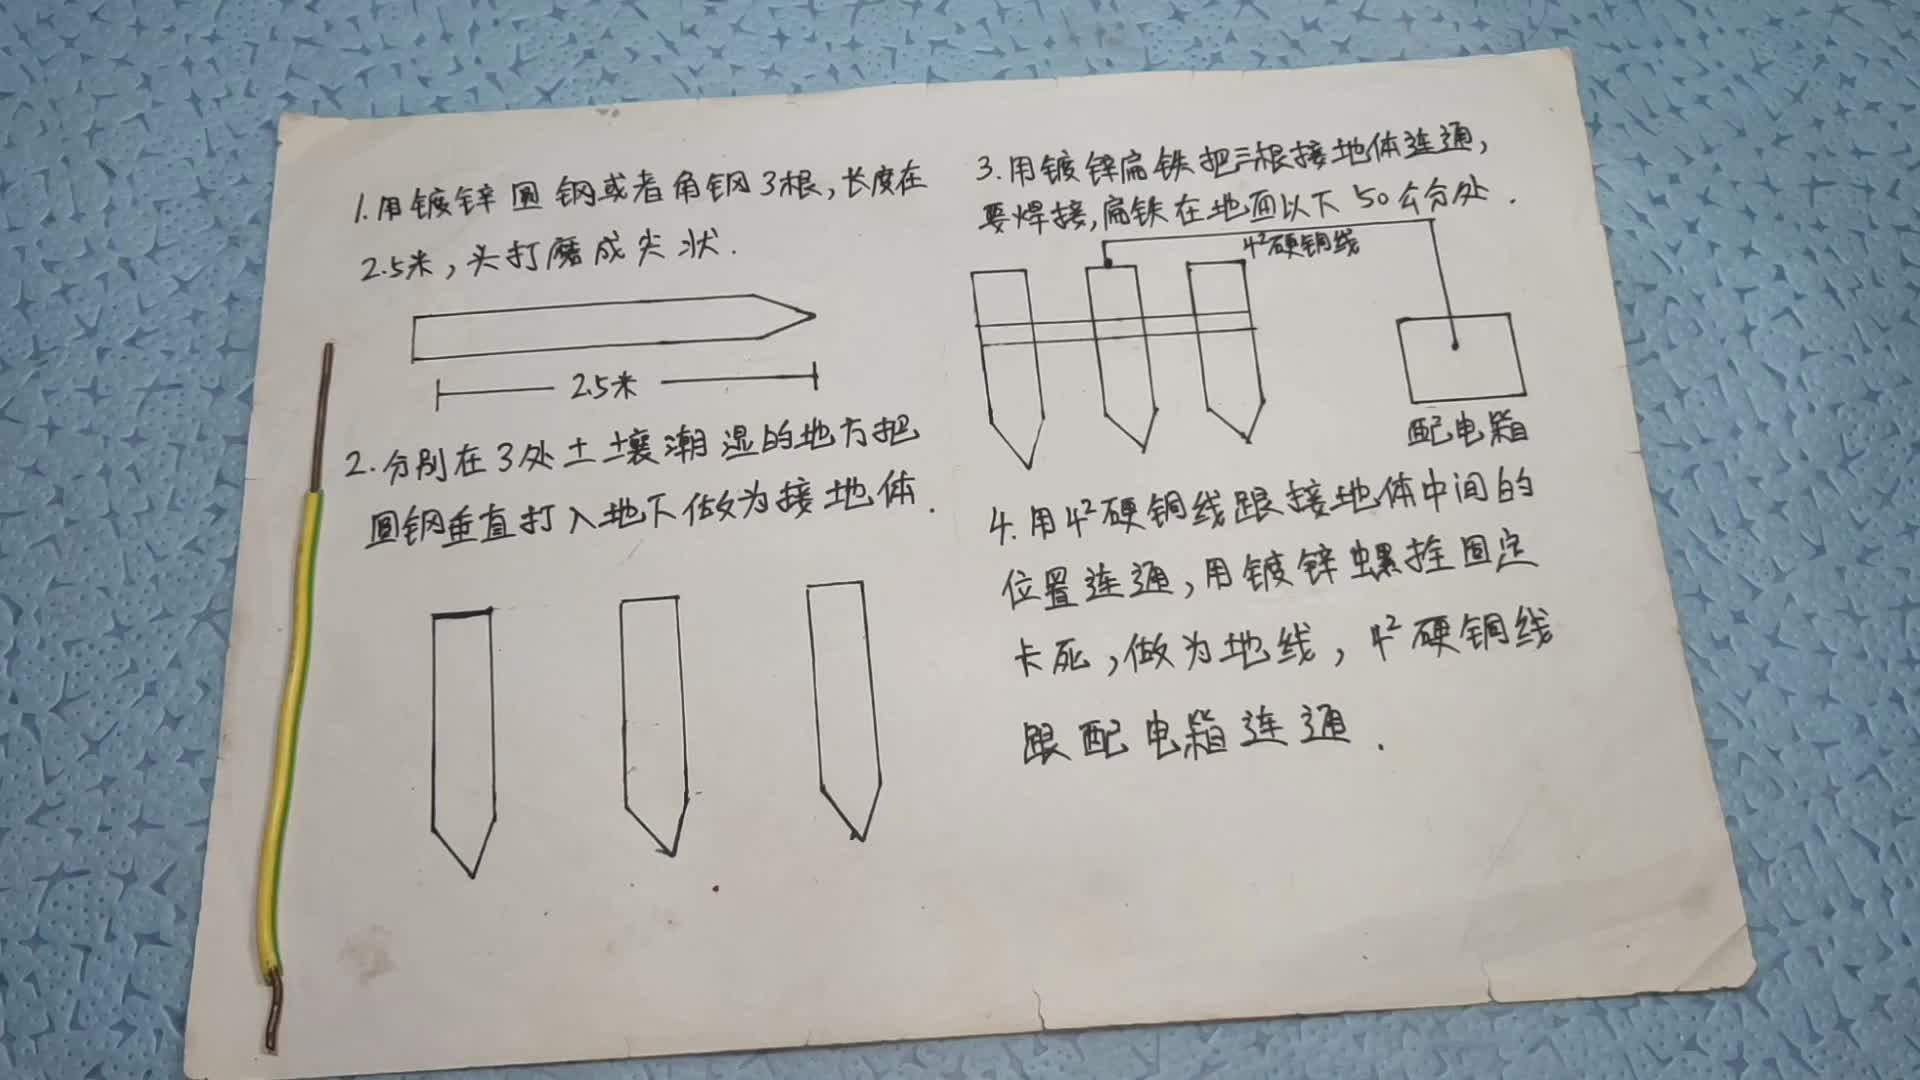 1.用镀锌圆钢或者角钢3根,长度在
2.5米,头打磨成尖状.
2.5米
2.分别在3处土壤潮湿的地方把
圆钢垂直打入地下做为接地体.
3.用镀锌扁铁把三根接地体连通,
要焊接,扁铁在地面以下50公分处.
4²硬铜线
配电箱
4.用4²硬铜线跟接地体中间的
位置连通,用镀锌螺拴固定
卡死,做为地线,4²硬铜线
跟配电箱连通.